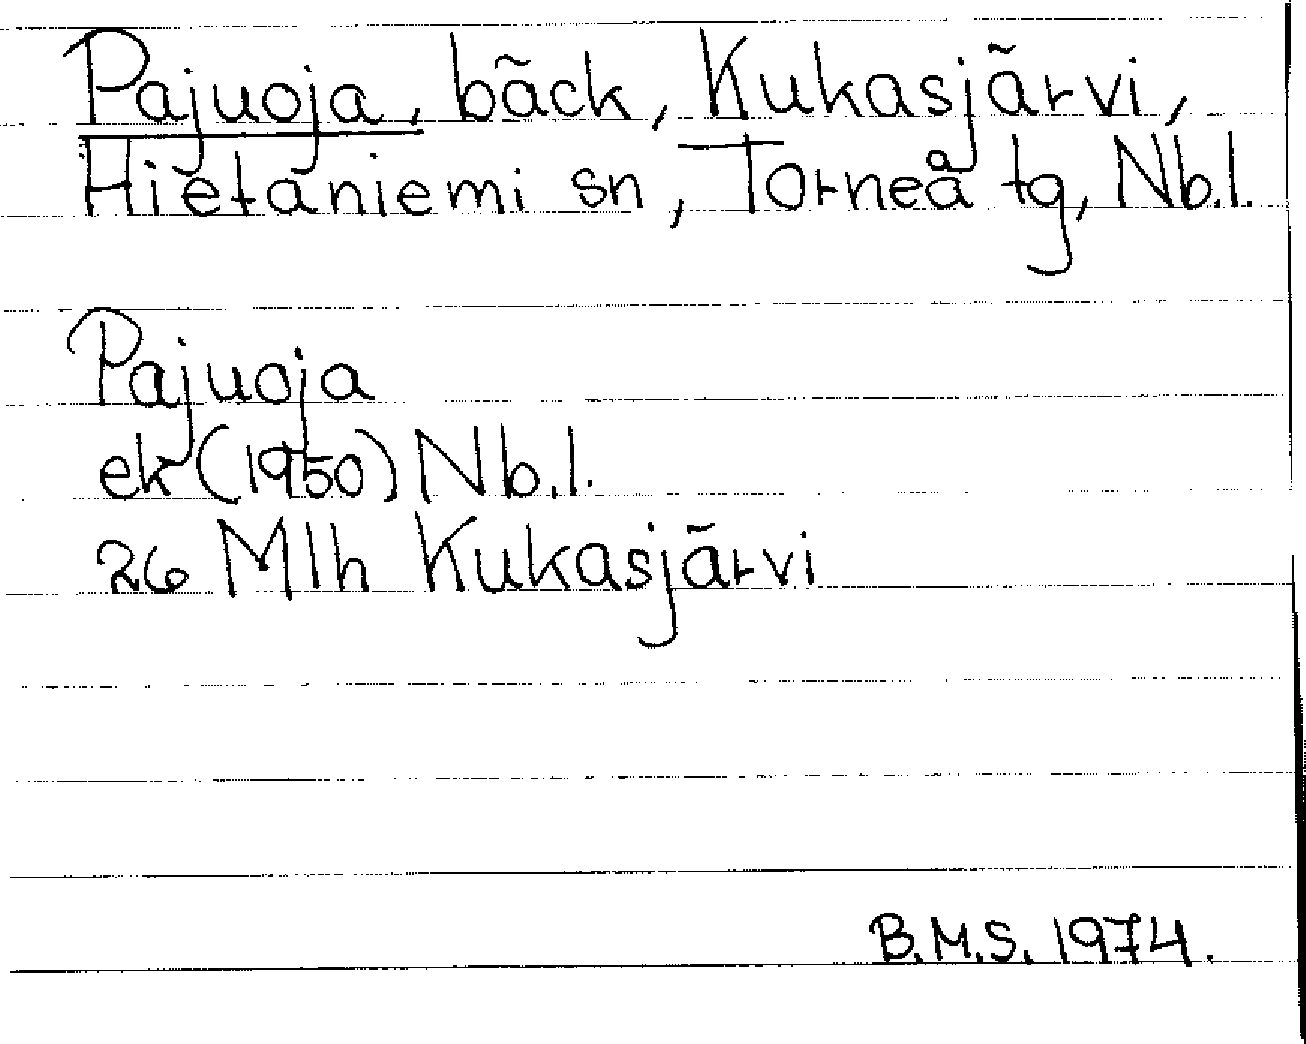 Pajuoja, bäck, Kukasjärvi,
Hietaniemi sn, Torneå tg, Nb.l.
Pajuoja
ek (1950) Nb.l.
26 Mlh Kukasjärvi
B.M.S. 1974.